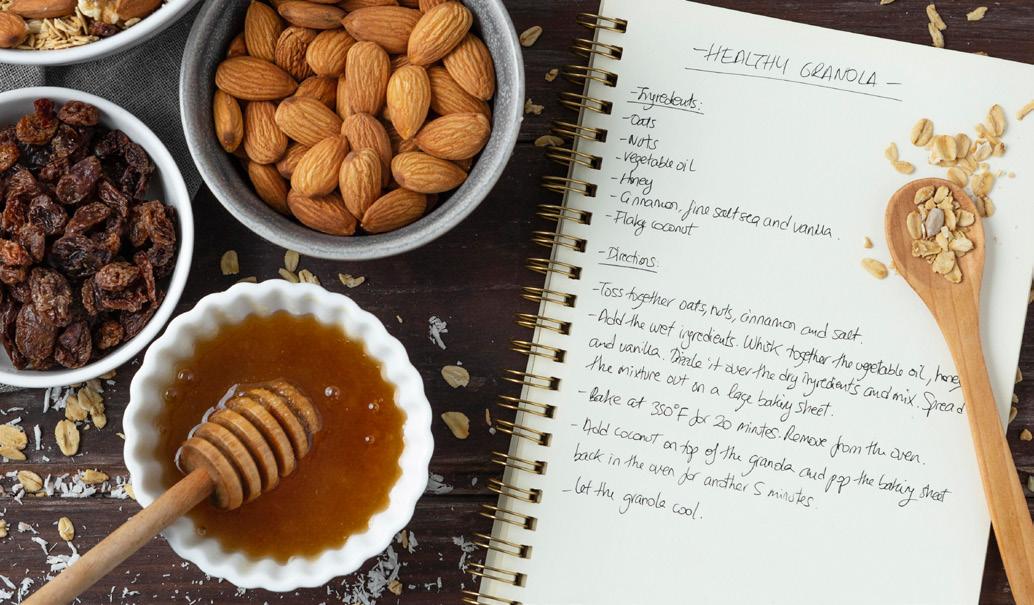 - HEALTHY GRANOLA -
- Ingredients:
- Oats
- Nuts
- Vegetable oil
- Honey
- Cinnamon, fine salt sea and vanilla.
- Flaky coconut
- Directions:
- Toss together oats, nuts, cinnamon and salt.
- Add the wet ingredients. Whisk together the vegetable oil, honey
and vanilla. Drizzle it over the dry ingredients and mix. Spread
the mixture out on a large baking sheet.
- Bake at 350°F for 20 minutes. Remove from the oven.
- Add coconut on top of the granola and pop the baking sheet
back in the oven for another 5 minutes.
- Let the granola cool.